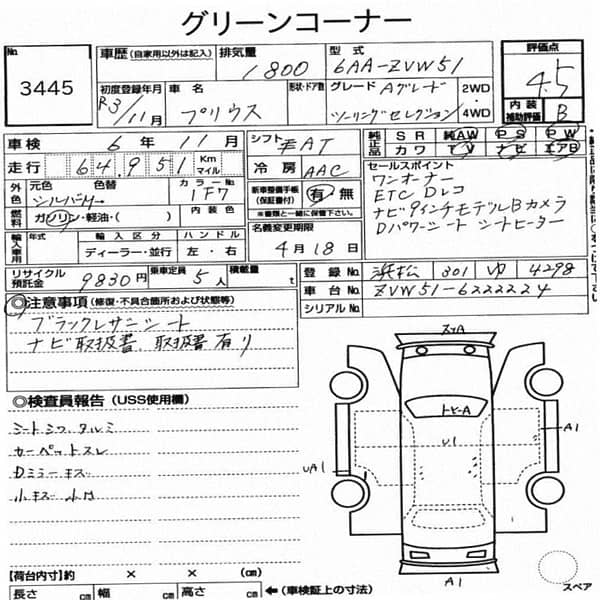 グリーンコーナー
No. 3445
車歴 (自家用以外は記入) 排気量 1800 型式 6AA-ZVW51
評価点 4.5
初度登録年月 R3/11月 車名 プリウス 形状・ドア数 グレード Aグレード ツーリングセレクション 2WD・4WD
内装補助評価 B
車検 6年 11月 シフト FAT
純正品 SR 純正AW PS PW
カワ TV ナビ エアB
走行 64,951 Km マイル 冷房 AAC
セールスポイント
ワンオーナー
ETC Dレコ
ナビ9インチモデル Bカメラ
Dパワーシート シートヒーター
外色 元色 シルバー 色替 カラーNo. 1F7
新車整備手帳(保証書) 有・無
※書類と一緒に保管下さい。
燃料 ガソリン・軽油・( ) 内装色
名義変更期限 4月18日
輸入車用 年式 輸入区分 ハンドル
ディーラー・並行 左・右
リサイクル預託金 9830円 乗車定員 5人 積載量 t
登録No. 浜松 301 ゆ 4298
車台No. ZVW51-6222224
シリアルNo.
◎注意事項 (修復・不具合箇所および状態等)
ブラックレザーシート
ナビ取扱書、取扱書有り
◎検査員報告 (USS使用欄)
シートシワ タルミ
カーペットスレ
Dミラーキズ
小キズ 小凹
スリA
トビ-A
U1
A1
UA1
A1
スペア
【荷台内寸】約 × × (cm)
長さ cm 幅 cm 高さ cm ← (車検証上の寸法)